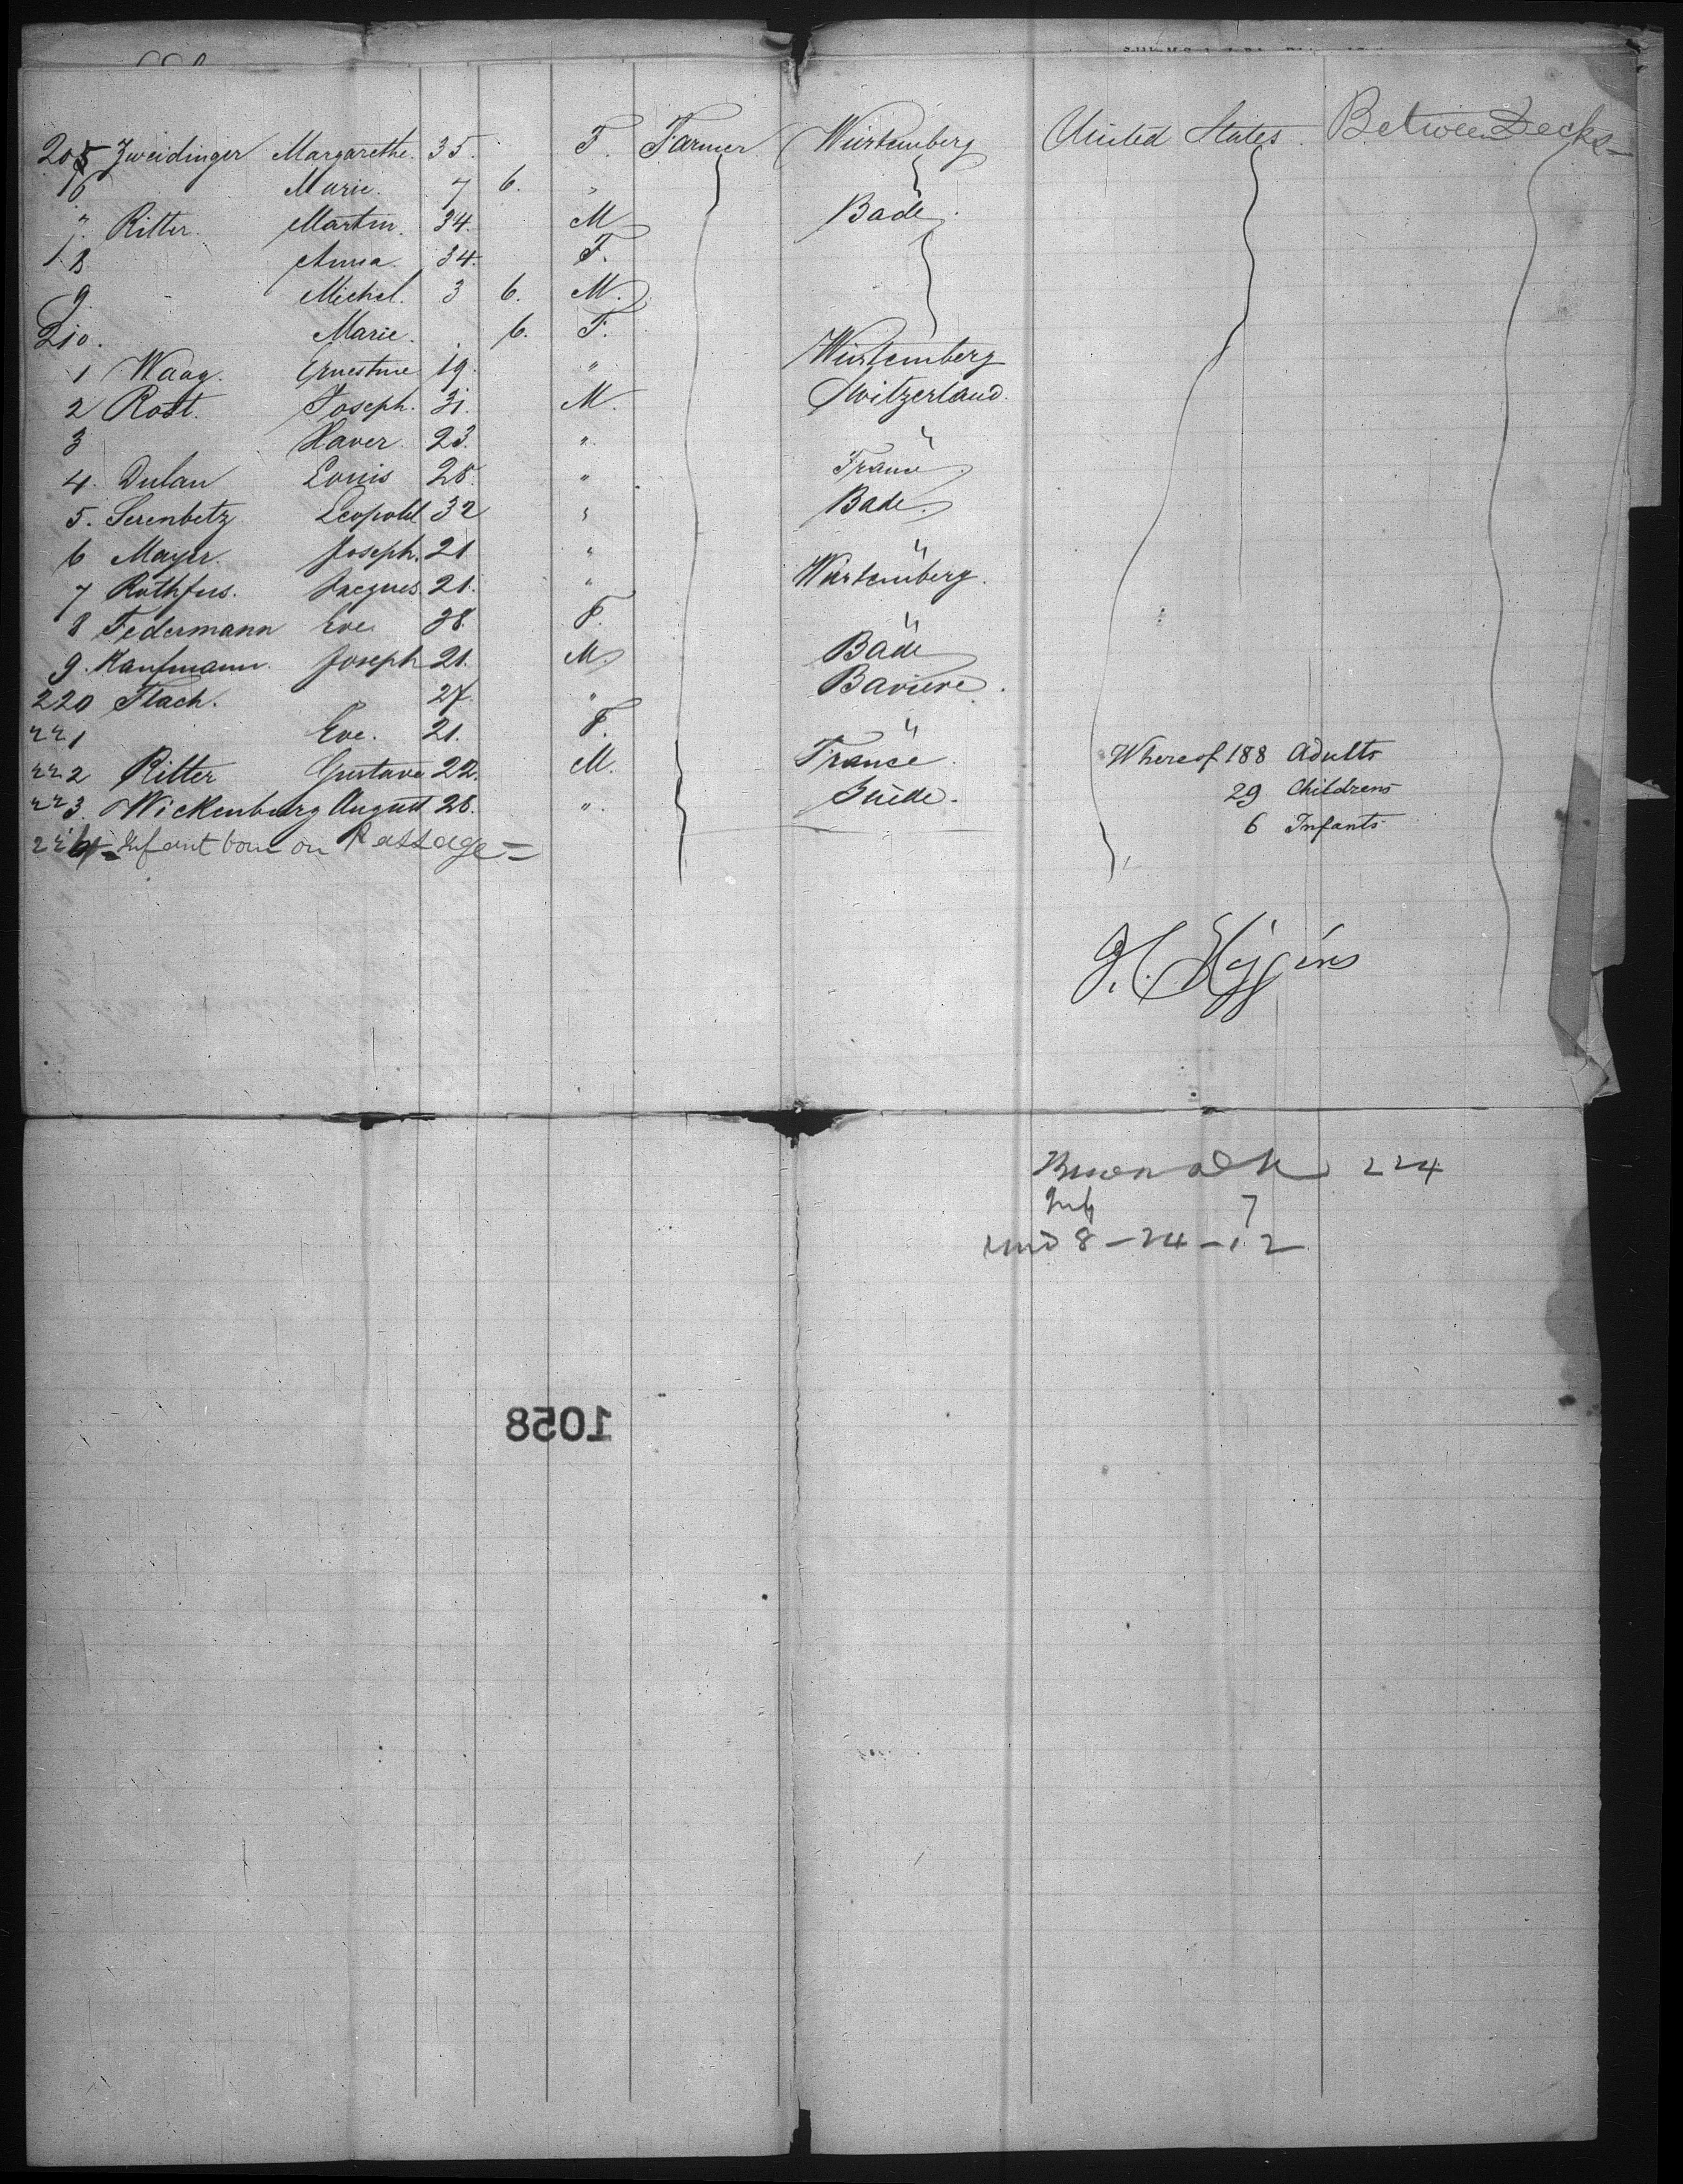 205 Zweidinger Margarethe. 35. F. Farmer Würtemberg United States. Between Decks
6 Marie. 7 6. "
7. Ritter. Martin. 34. M. Bade.
8 Anna. 34. F.
9. Michel. 3 6. M.
210. Marie. 6. F.
1 Waag. Ernestine 19. " Würtemberg
2 Rost. Joseph. 31. M. Switzerland.
3 Xaver. 23. " "
4. Dulau Louis 28. " France.
5. Serenbetz Leopold 32 " Bade.
6 Mayer. Joseph. 21 " "
7 Rothfus. Jacques 21. " Würtemberg.
8 Federmann Eve 38. F. "
9. Kaufmann. Joseph 21. M. Bade
220 Flach. 27. " Baviere.
221 Eve. 21. F. "
222 Ritter Gustave 22. M. France.
223. Wickenburg August 28. " Suède.
224 - Infant born on Passage =
Whereof 188 Adults
29 Childrens
6 Infants
H. Higgins
224
Inf 7
8 - 24 - 12
1058